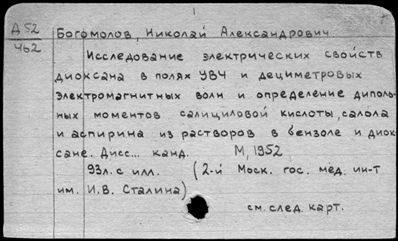 Д 52
462
Богомолов, Николай Александрович
Исследование электрических свойств
диоксана в полях УВЧ и дециметровых
электромагнитных волн и определение диполь-
ных моментов салициловой кислоты, салола
и аспирина из растворов в бензоле и диок-
сане. Дисс... канд. М, 1952.
93л. с илл. (2-й Моск. гос. мед. ин-т
им. И.В. Сталина)
см. след. карт.